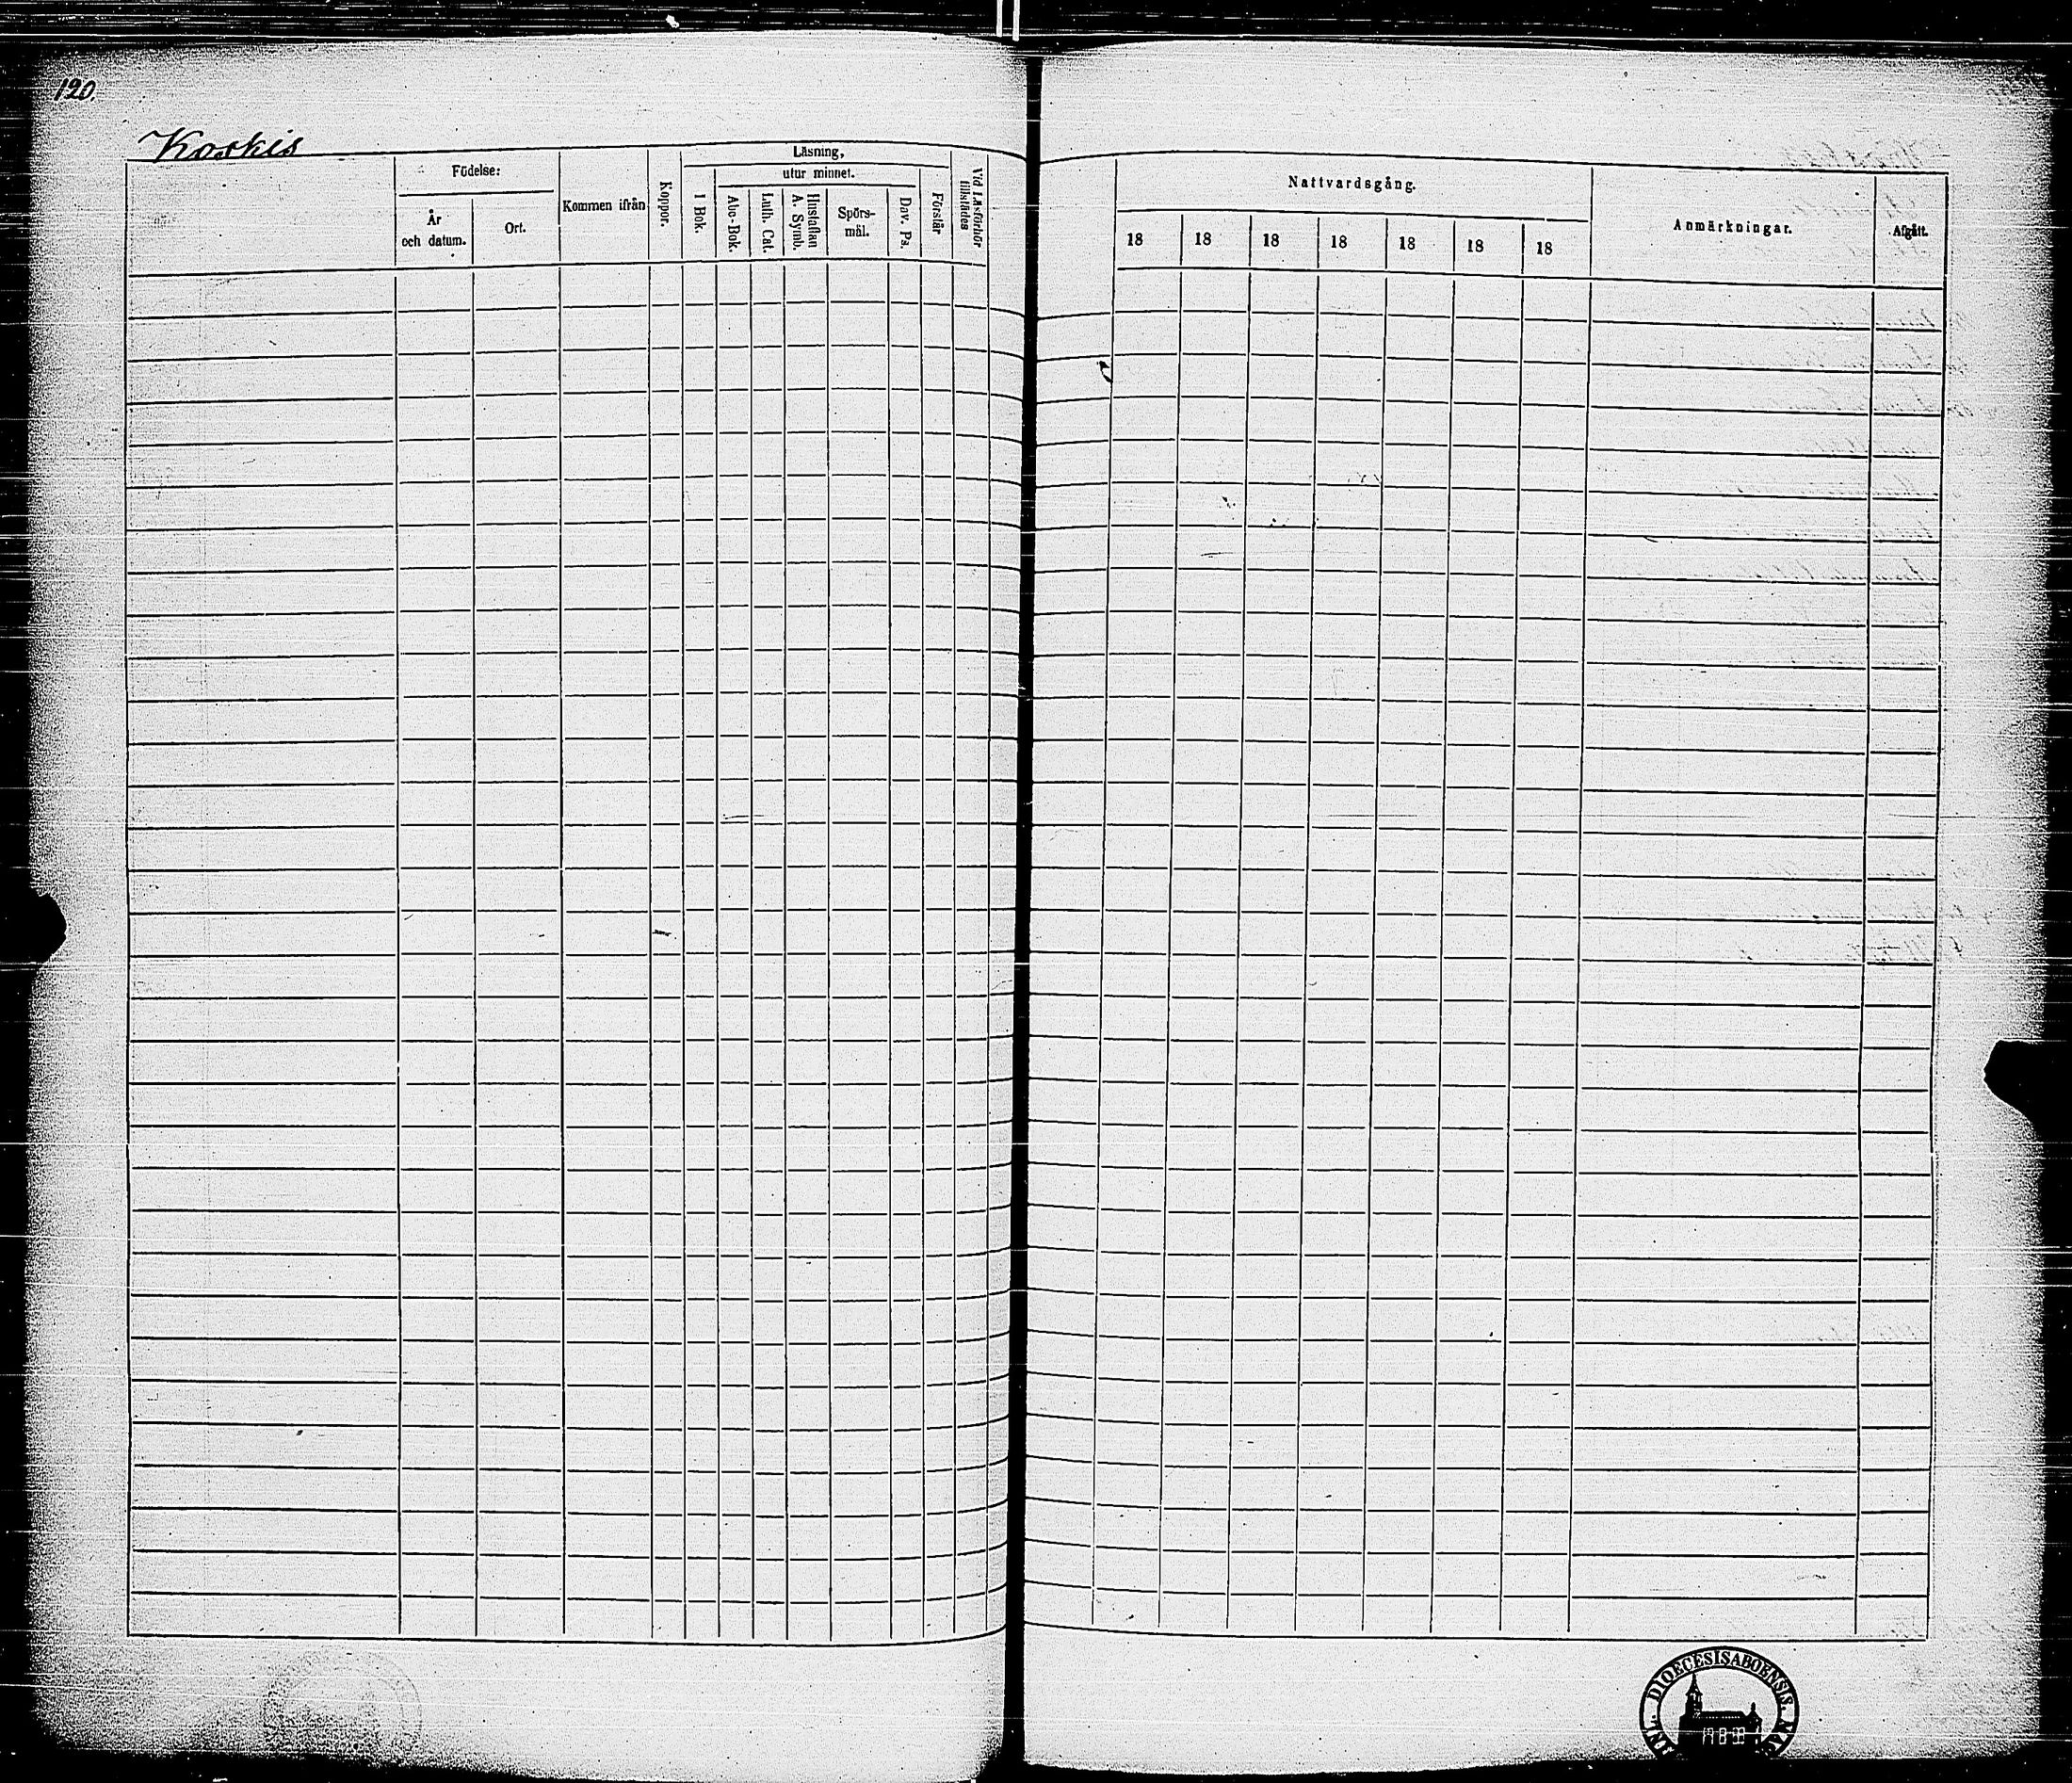 120.
Koskis
Födelse:
År
och datum.
Ort.
Kommen ifrån
Koppor.
Läsning,
I Bok.
utur minnet.
Abc-Bok.
Luth. Cat.
Hustaflan
A. Symb.
Spörs-
mål.
Dav. Ps.
Förstår
Vid Läsförhör
tillstädes
Nattvardsgång.
18 18 18 18 18 18 18
Anmärkningar.
Afgått.
DIOECESIS ABOENSIS